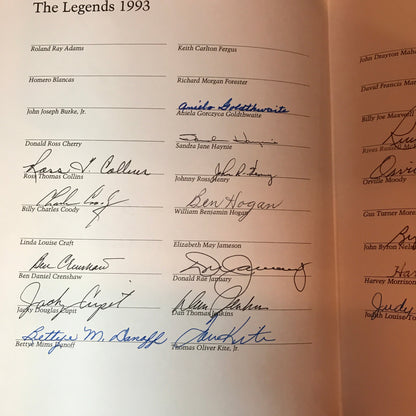 The Legends 1993
Roland Ray Adams
Homero Blancas
John Joseph Burke, Jr.
Donald Ross Cherry
Ross T. Collins
Ross Thomas Collins
Charles Coody
Billy Charles Coody
Linda Louise Craft
Ben Crenshaw
Ben Daniel Crenshaw
Jack Cupit
Jacky Douglas Cupit
Bettye M. Danoff
Bettye Mims Danoff
Keith Carlton Fergus
Richard Morgan Forester
Aniela Goldthwaite
Aniela Gorczyca Goldthwaite
Sandra Haynie
Sandra Jane Haynie
Johnny Ross Henry
Ben Hogan
William Benjamin Hogan
Elizabeth May Jameson
Don January
Donald Rae January
Dan Jenkins
Dan Thomas Jenkins
Tom Kite
Thomas Oliver Kite, Jr.
John Drayton
David Francis
Billy Joe Maxwell
Rives
Orville Moody
Gus Turner
By
John Byron
Har
Harvey Morrison
Judy
Judith Louise